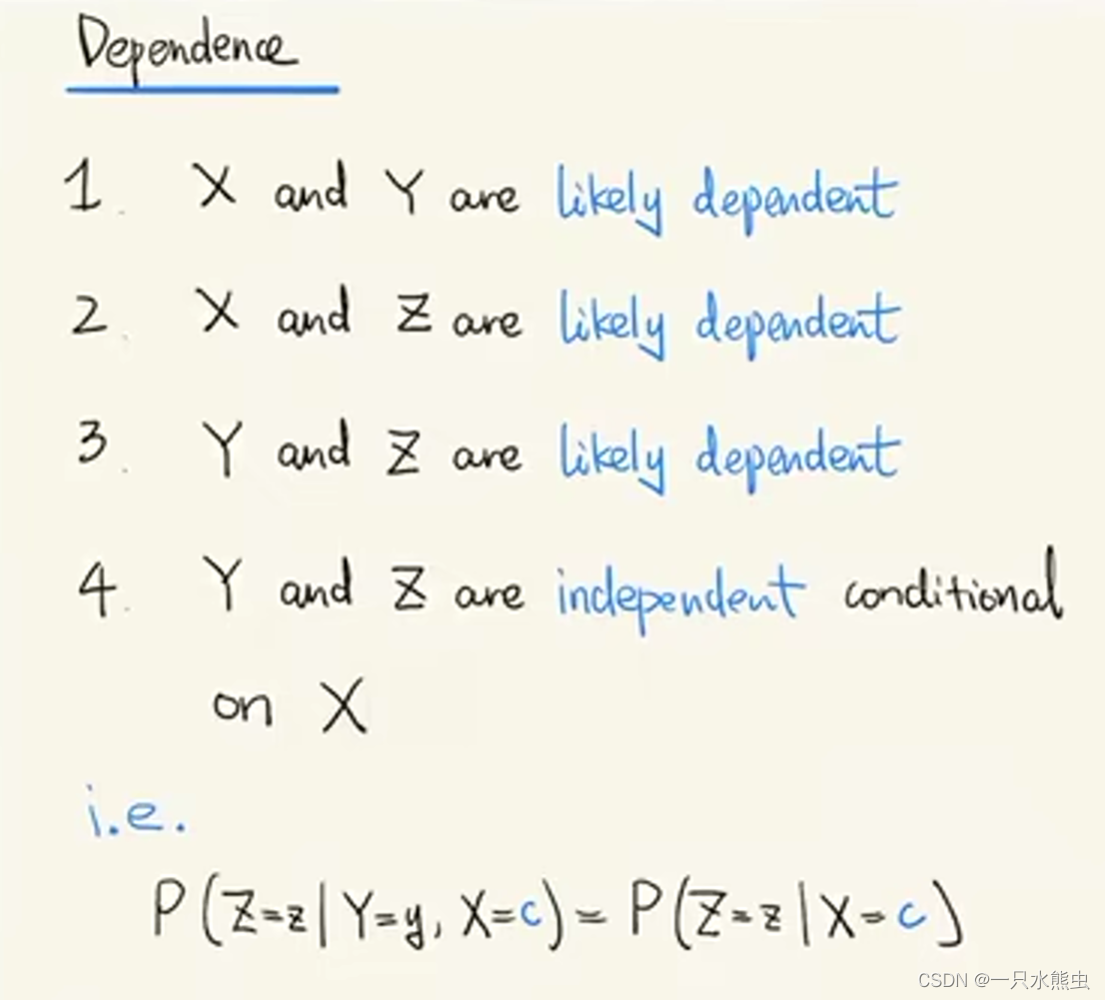 Dependence
1. X and Y are likely dependent
2. X and Z are likely dependent
3. Y and Z are likely dependent
4. Y and Z are independent conditional
on X
i.e.
P(Z=z|Y=y, X=c) = P(Z=z|X=c)
CSDN @一只水熊虫